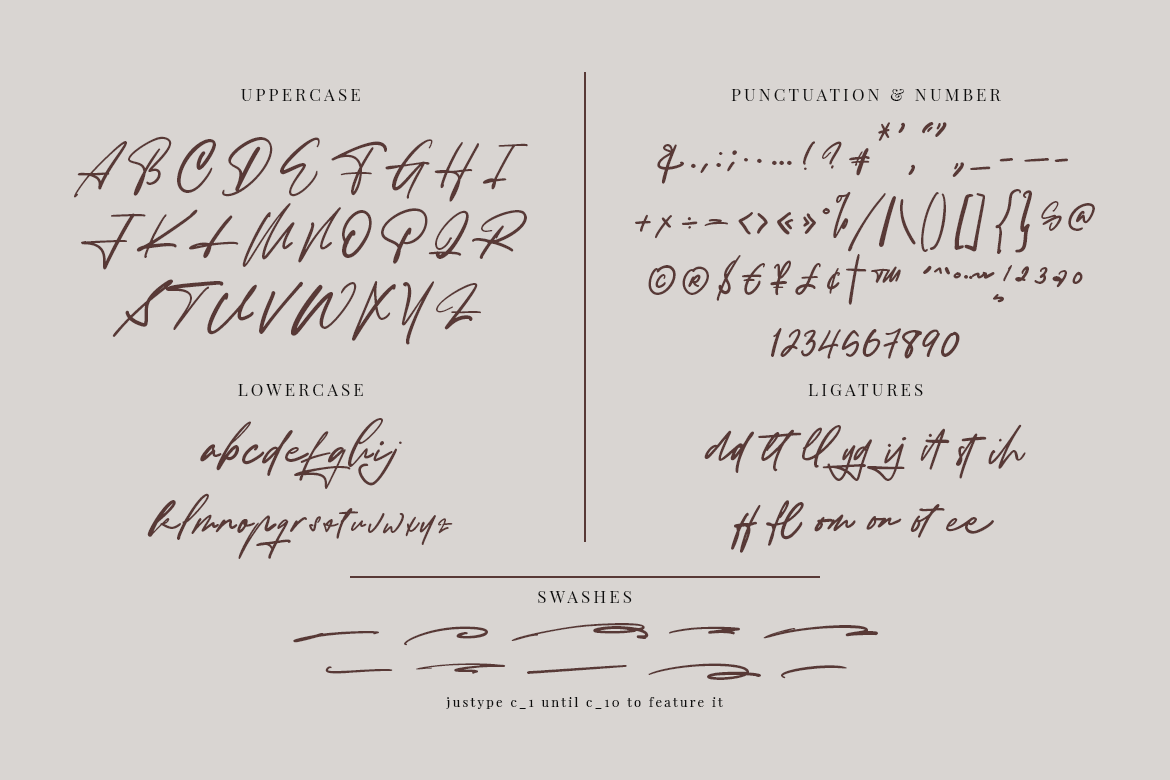 UPPERCASE
A B C D E F G H I
J K L M N O P Q R
S T U V W X Y Z
LOWERCASE
a b c d e f g h i j
k l m n o p q r s o t u v w x y z
PUNCTUATION & NUMBER
& . , : ; · · … ! ? # * ’ , “” „ _ – — –
+ × ÷ = < > « » ° % / | \ ( ) [ ] { } § @
© ® $ € ¥ £ ¢ † ™
1 2 3 4 5 6 7 8 9 0
LIGATURES
dd tt ll yg ij it st ih
ff fl om on ot ee
SWASHES
justype c_1 until c_10 to feature it